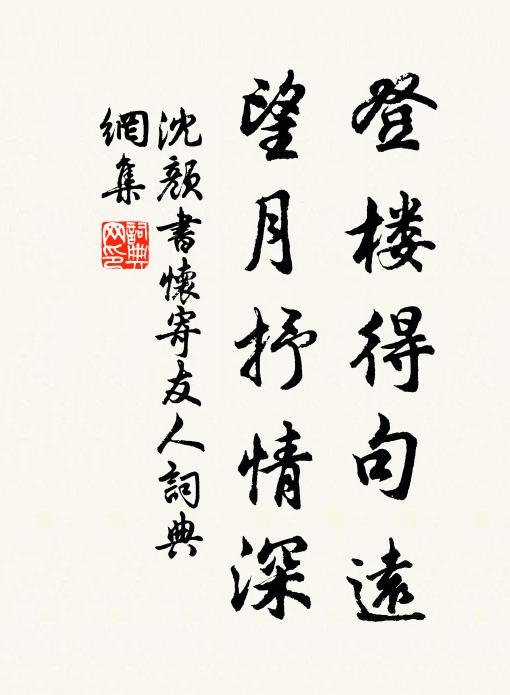 登楼得句遠
望月抒情深
沈顔書懷寄友人詞典
網集
詞典网印